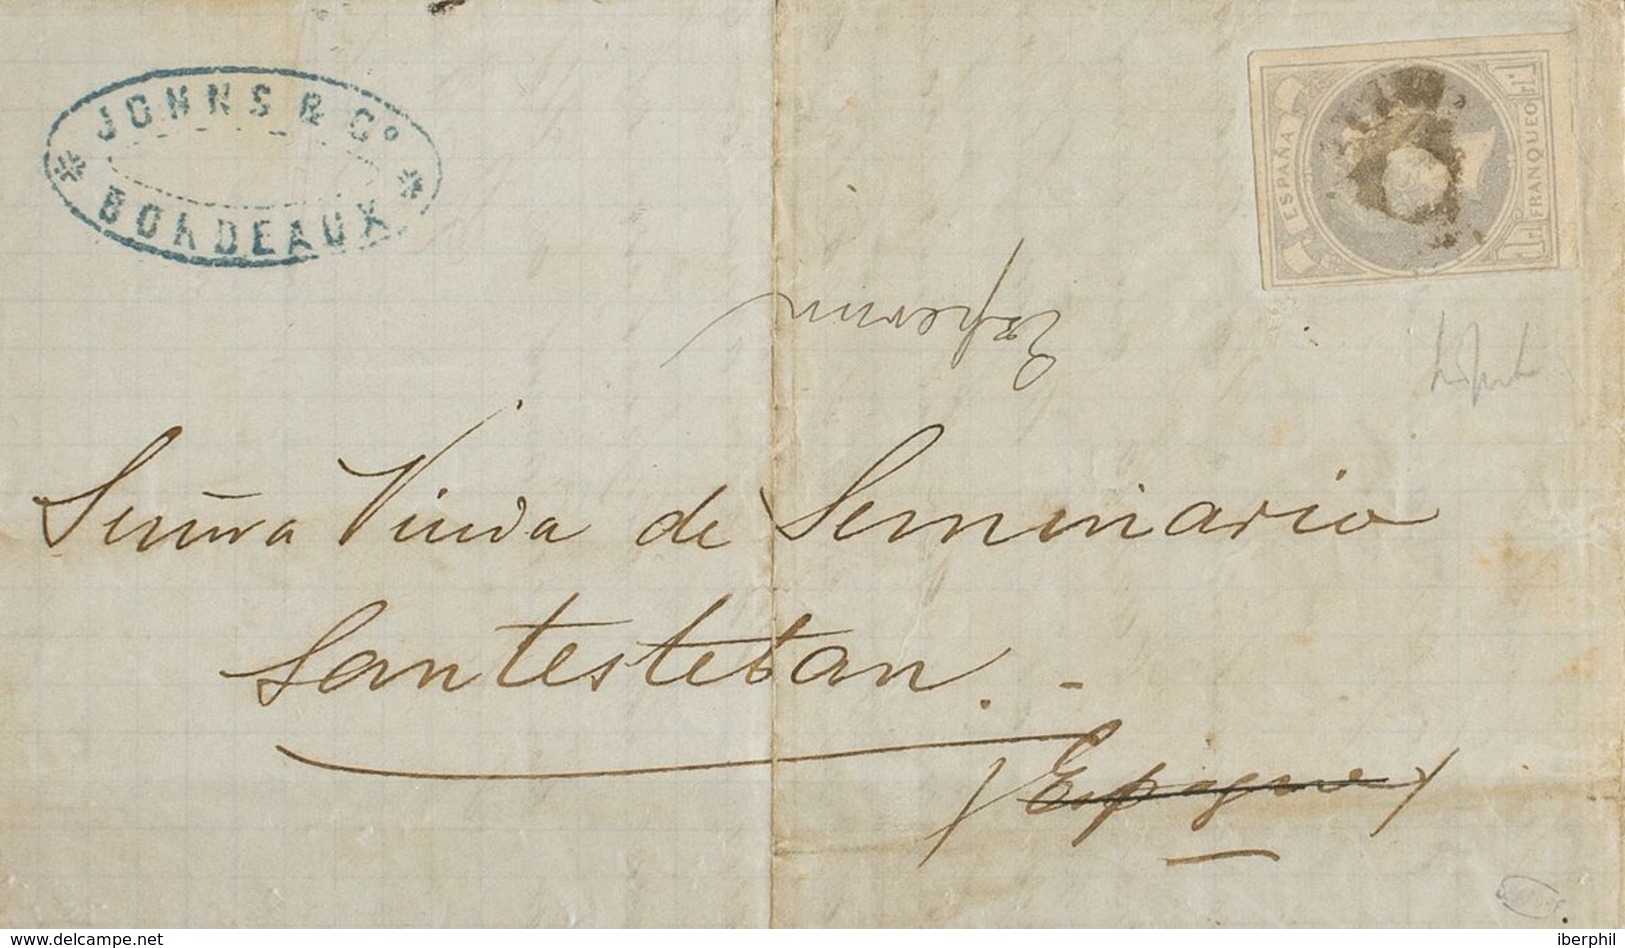 JOHNS & Cº
BORDEAUX
ESPAÑA
FRANQUEO
1 r.
1 r.
Señora Viuda de Seminario
Santesteban. -
(Espagne)
delcampe.net
iberphil